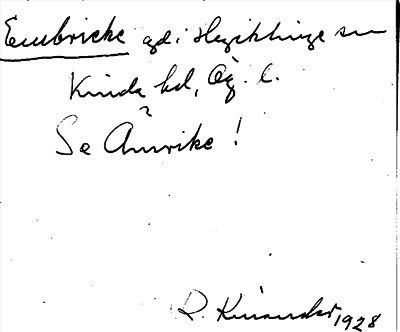 Embricke gd i Hycklinge sn
Kinda hd, Ög. l.
Se !
R. Kinander 1928